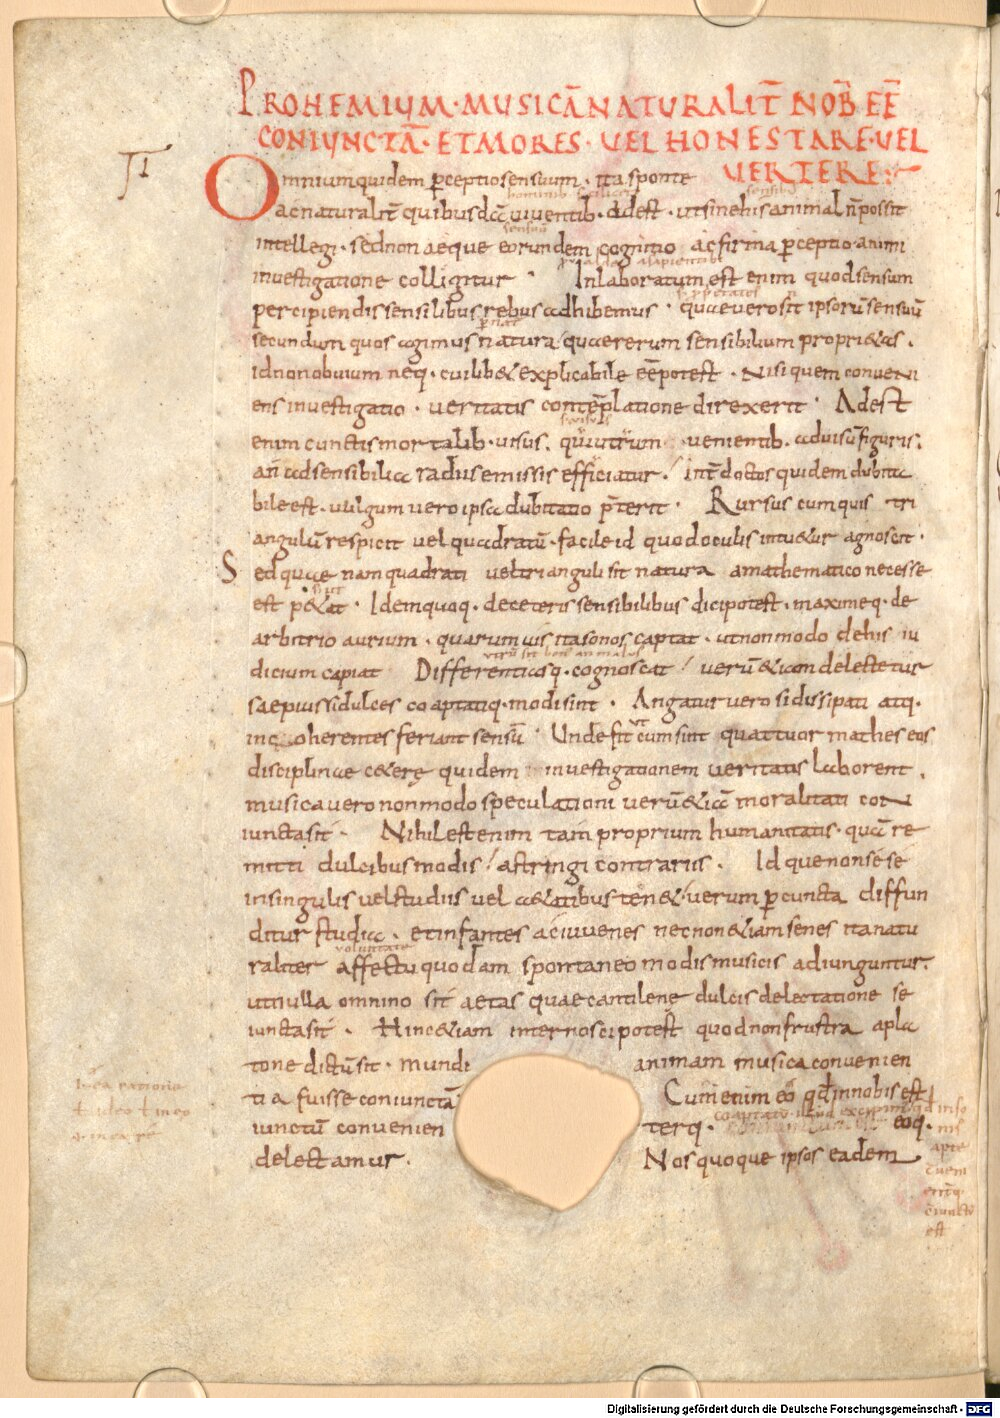 PROHEMIUM · MUSICĀ NATURALIT̄ NOB̄ EĒ
CONIUNCTĀ · ET MORES · UEL HONESTARE · UEL
UERTERE
Omnium quidem ꝑceptio sensuum · ita sponte
ac naturalit̄ quibusdā uiuentib · adest · ut sine his animal n̄ possit
intellegi · sed non aeque eorundem cognitio ac firma ꝑceptio animi
inuestigatione colligitur · Inlaboratum est enim quod sensum
percipiendis sensilibus rebus adhibemus · quae uero sit ipsorū sensuū
secundum quos agimus natura / quae rerum sensibilium propri&as ·
id non obuium neq · cuilib& explicabile eē potest · Nisi quem conueni
ens inuestigatio · ueritatis contēplatione direxerit · Adest
enim cunctis mortalib · uisus · qui utrum uenientib · ad uisū figuris ·
an ad sensibilia radiis emissis efficiatur / int̄ doctos quidem dubita
bile est · uulgum uero ipsa dubitatio p̄terit · Rursus cum quis tri
angulū respicit uel quadratū · facile id quod oculis intu&ur agnoscit ·
Sed quae nam quadrati uel trianguli sit natura a mathematico necesse
est p&at · Idem quoq · de ceteris sensibilibus dici potest · maximeq · de
arbitrio aurium · quarum uis ita sonos captat · ut non modo de his iu
dicium capiat Differentiasq · cognoscat / uerū &iam delectetur
saepius si dulces coaptatiq · modi sint · Angatur uero si dissipati atq ·
incoherentes feriant sensū · Unde fit ut cum sint quattuor matheseos
disciplinae c&erę quidem inuestigationem ueritatis laborent ·
musica uero non modo speculationi uerū &iā moralitati con
iuncta sit · Nihil est enim tam proprium humanitatis · quā re
mitti dulcibus modis / astringi contrariis · Idque non sese
in singulis uel studiis uel a&atibus ten& · uerum ꝑ cuncta diffun
ditur studia · et infantes ac iuuenes nec non &iam senes ita natu
raliter affectu quodam spontaneo modis musicis adiunguntur ·
ut nulla omnino sit aetas quae cantilenę dulcis delectatione se
iuncta sit · Hinc &iam internosci potest quod non frustra a pla
tone dictū sit · mundi animam musica conuenien
tia fuisse coniunctā Cum enim eo qd̄ in nobis est
iunctū conuenien terq · eoq ·
delectamur · Nos quoque ipsos eadem
Digitalisierung gefördert durch die Deutsche Forschungsgemeinschaft · DFG